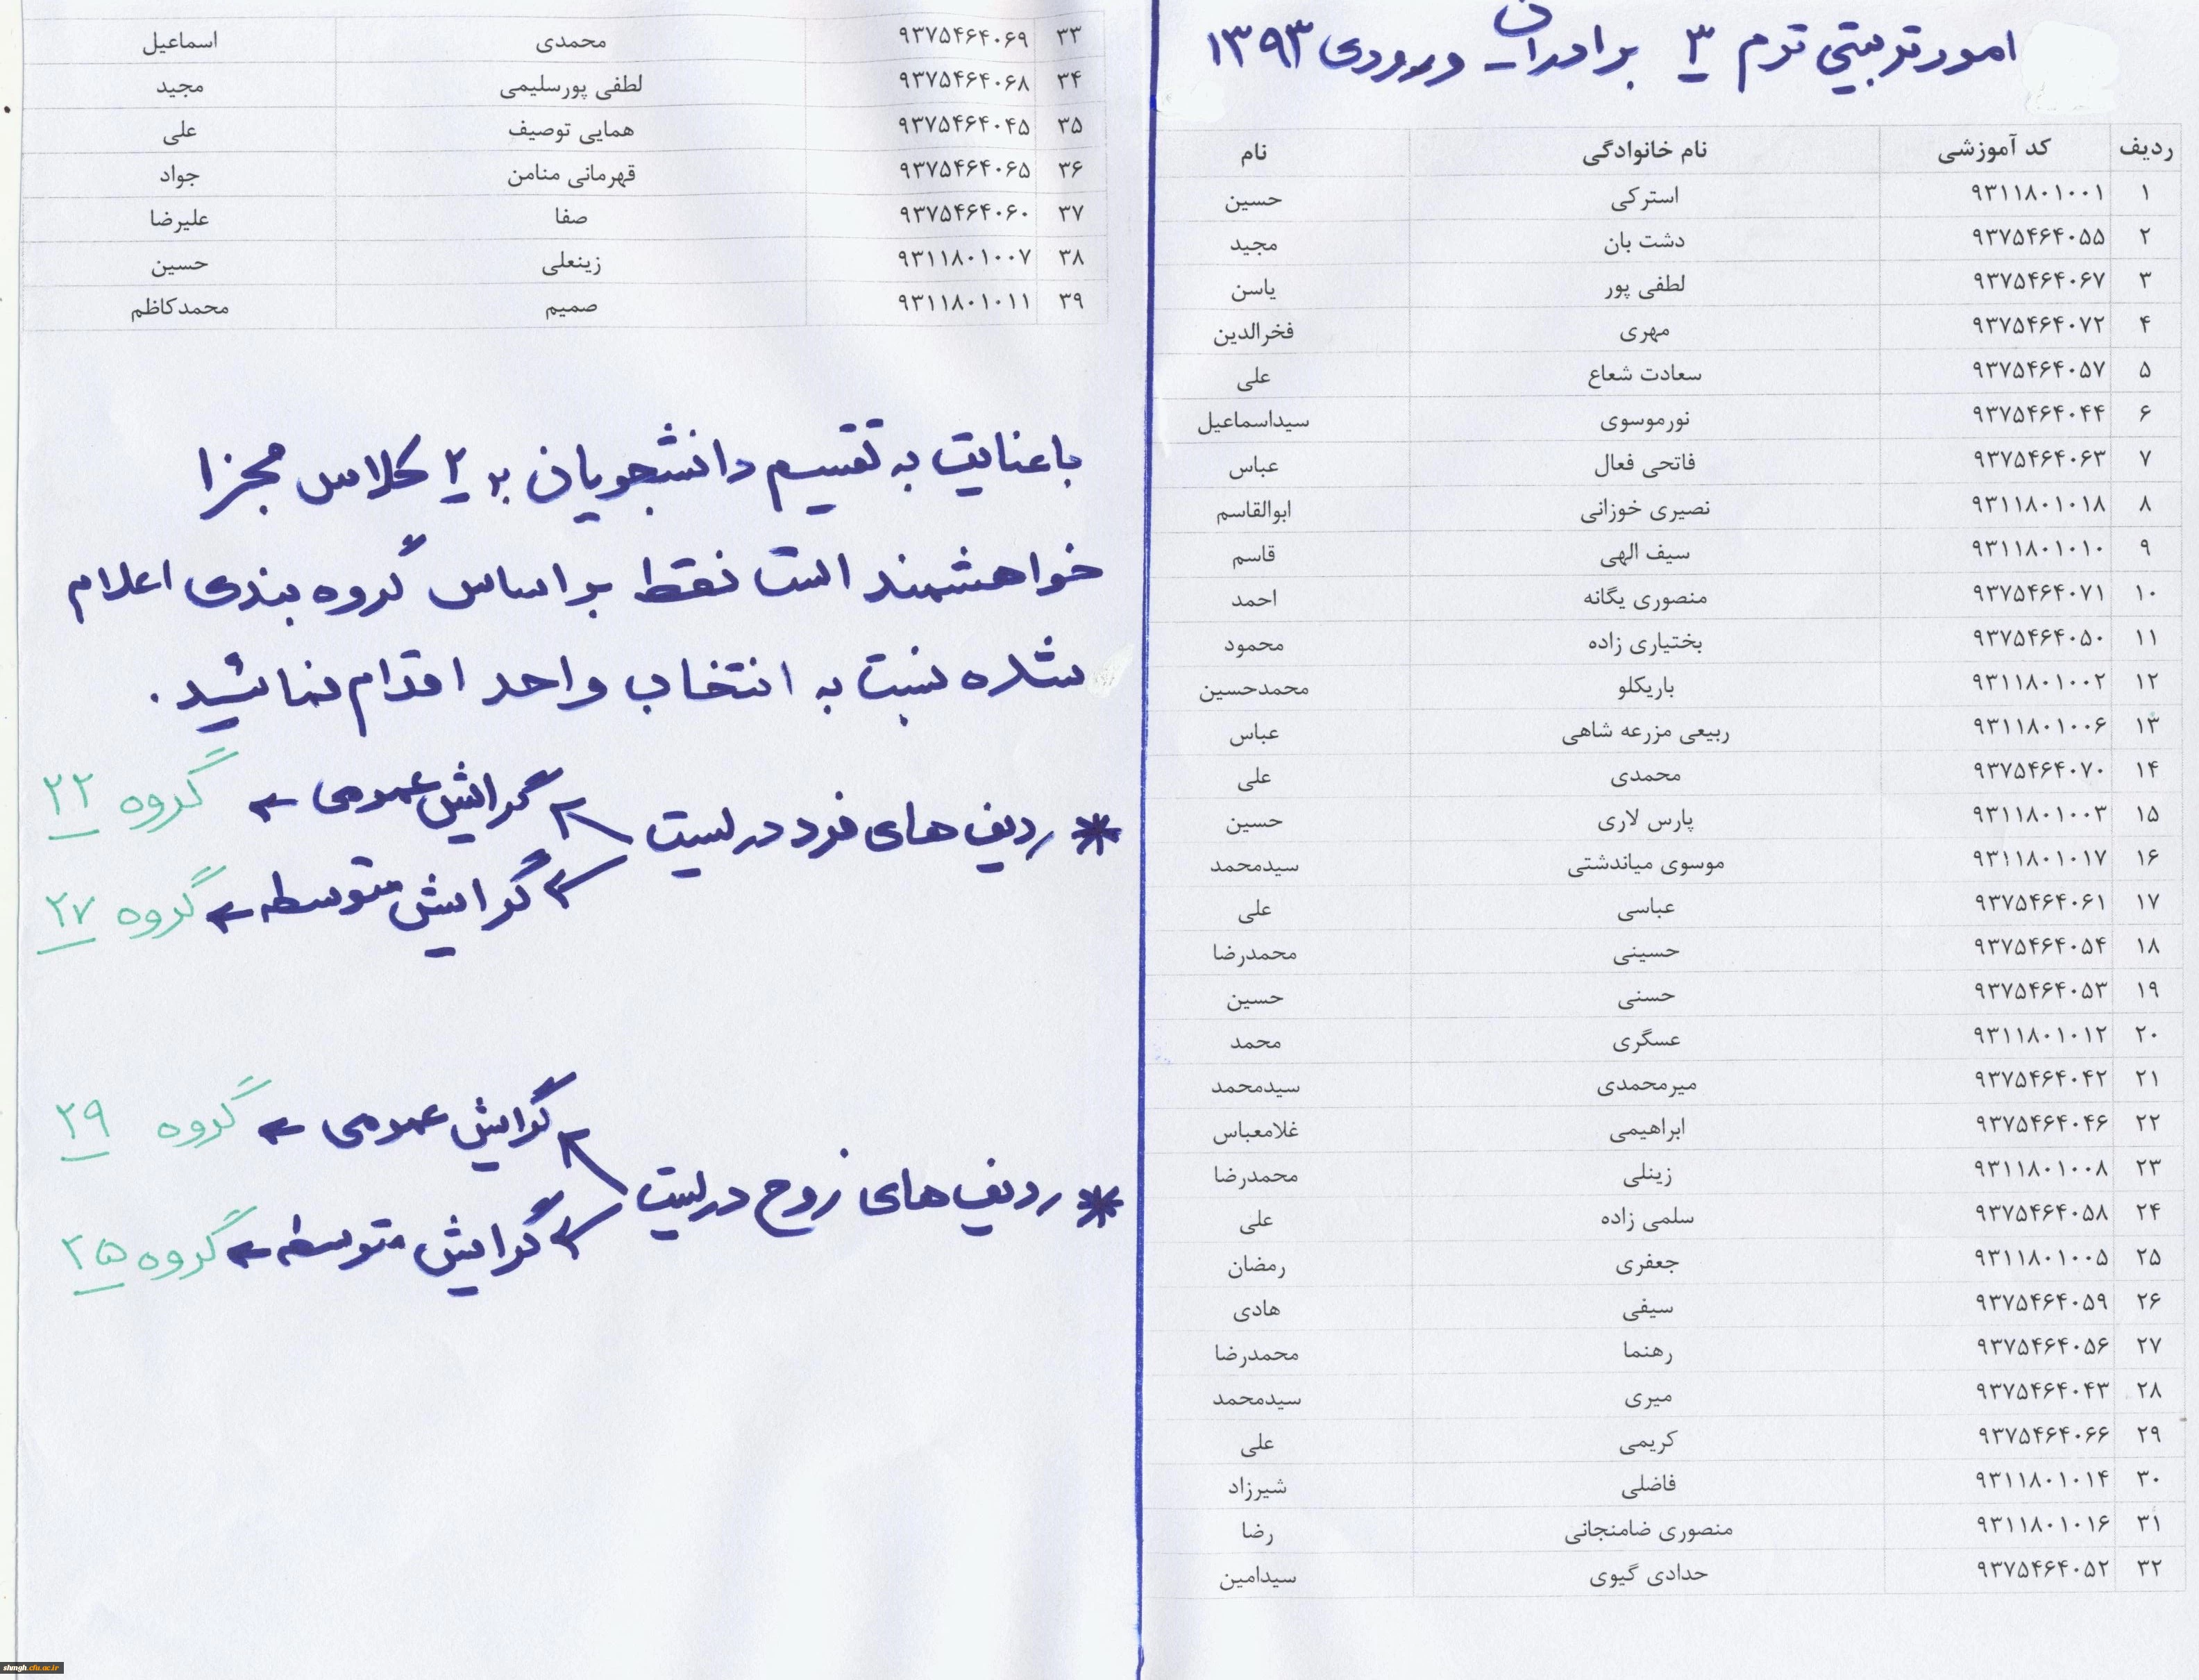 امور تربیتی ترم ۳ برادران ورودی ۱۳۹۳
ردیف کد آموزشی نام خانوادگی نام
۱ ۹۳۱۱۸۰۱۰۰۱ استرکی حسین
۲ ۹۳۷۵۴۶۴۰۵۵ دشت بان مجید
۳ ۹۳۷۵۴۶۴۰۶۷ لطفی پور یاسن
۴ ۹۳۷۵۴۶۴۰۷۲ مهری فخرالدین
۵ ۹۳۷۵۴۶۴۰۵۷ سعادت شعاع علی
۶ ۹۳۷۵۴۶۴۰۴۴ نورموسوی سیداسماعیل
۷ ۹۳۷۵۴۶۴۰۶۳ فاتحی فعال عباس
۸ ۹۳۱۱۸۰۱۰۱۸ نصیری خوزانی ابوالقاسم
۹ ۹۳۱۱۸۰۱۰۱۰ سیف الهی قاسم
۱۰ ۹۳۷۵۴۶۴۰۷۱ منصوری یگانه احمد
۱۱ ۹۳۷۵۴۶۴۰۵۰ بختیاری زاده محمود
۱۲ ۹۳۱۱۸۰۱۰۰۲ باریکلو محمدحسین
۱۳ ۹۳۱۱۸۰۱۰۰۶ ربیعی مزرعه شاهی عباس
۱۴ ۹۳۷۵۴۶۴۰۷۰ محمدی علی
۱۵ ۹۳۱۱۸۰۱۰۰۳ پارس لاری حسین
۱۶ ۹۳۱۱۸۰۱۰۱۷ موسوی میاندشتی سیدمحمد
۱۷ ۹۳۷۵۴۶۴۰۶۱ عباسی علی
۱۸ ۹۳۷۵۴۶۴۰۵۴ حسینی محمدرضا
۱۹ ۹۳۷۵۴۶۴۰۵۳ حسنی حسین
۲۰ ۹۳۱۱۸۰۱۰۱۲ عسگری محمد
۲۱ ۹۳۷۵۴۶۴۰۴۲ میرمحمدی سیدمحمد
۲۲ ۹۳۷۵۴۶۴۰۴۶ ابراهیمی غلامعباس
۲۳ ۹۳۱۱۸۰۱۰۰۸ زینلی محمدرضا
۲۴ ۹۳۷۵۴۶۴۰۵۸ سلمی زاده علی
۲۵ ۹۳۱۱۸۰۱۰۰۵ جعفری رمضان
۲۶ ۹۳۷۵۴۶۴۰۵۹ سیفی هادی
۲۷ ۹۳۷۵۴۶۴۰۵۶ رهنما محمدرضا
۲۸ ۹۳۷۵۴۶۴۰۴۳ میری سیدمحمد
۲۹ ۹۳۷۵۴۶۴۰۶۶ کریمی علی
۳۰ ۹۳۱۱۸۰۱۰۱۴ فاضلی شیرزاد
۳۱ ۹۳۱۱۸۰۱۰۱۶ منصوری ضامنجانی رضا
۳۲ ۹۳۷۵۴۶۴۰۵۲ حدادی گیوی سیدامین
۳۳ ۹۳۷۵۴۶۴۰۶۹ محمدی اسماعیل
۳۴ ۹۳۷۵۴۶۴۰۶۸ لطفی پورسلیمی مجید
۳۵ ۹۳۷۵۴۶۴۰۴۵ همایی توصیف علی
۳۶ ۹۳۷۵۴۶۴۰۶۵ قهرمانی منامن جواد
۳۷ ۹۳۷۵۴۶۴۰۶۰ صفا علیرضا
۳۸ ۹۳۱۱۸۰۱۰۰۷ زینعلی حسین
۳۹ ۹۳۱۱۸۰۱۰۱۱ صمیم محمدکاظم
با عنایت به تقسیم دانشجویان به ۲ کلاس مجزا
خواهشمند است فقط بر اساس گروه بندی اعلام
شده نسبت به انتخاب واحد اقدام نمائید.
* ردیف های فرد در لیست
گرایش عمومی ← گروه ۲۲
گرایش متوسطه ← گروه ۲۷
* ردیف های زوج در لیست
گرایش عمومی ← گروه ۲۹
گرایش متوسطه ← گروه ۲۵
shmgh.cfu.ac.ir